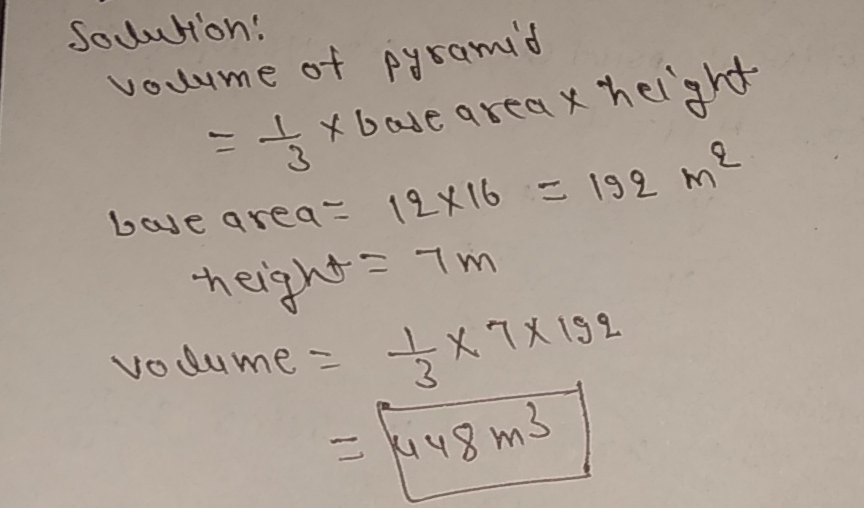 Solution:
volume of pyramid
= 1/3 × base area × height
base area = 12×16 = 192 m²
height = 7m
volume = 1/3 × 7 × 192
= 448 m³